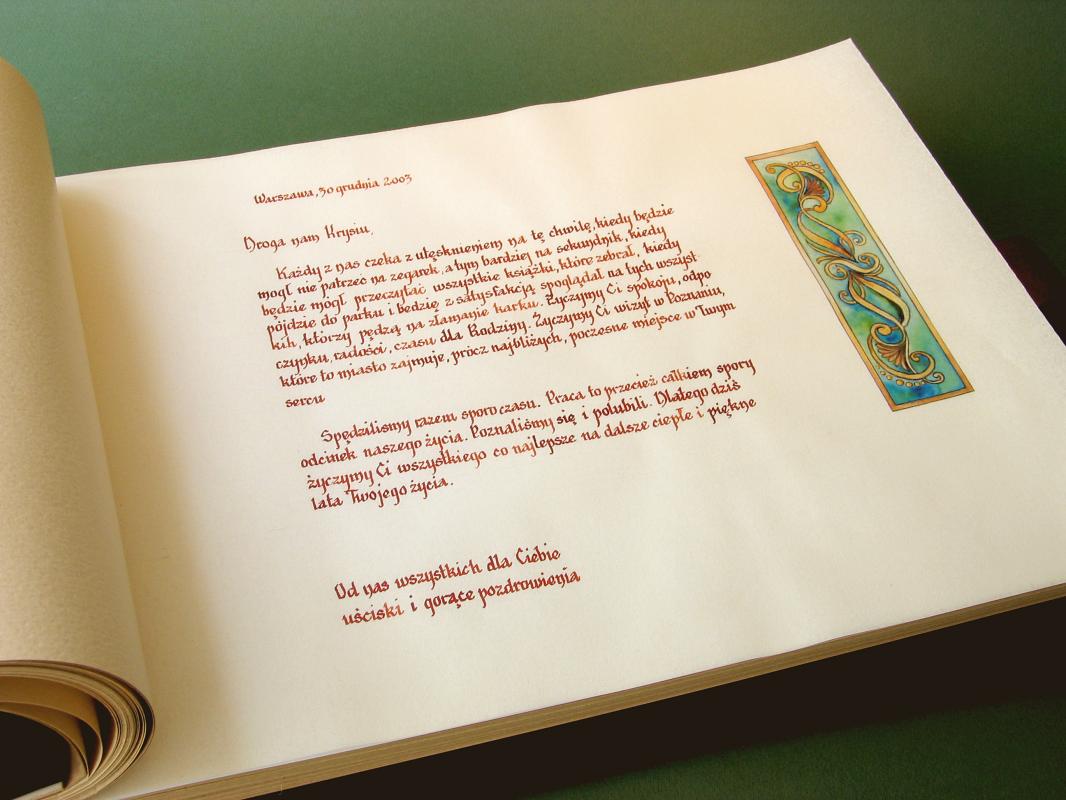 Warszawa, 30 grudnia 2003
Droga nam Krysiu,
Każdy z nas czeka z utęsknieniem na tę chwilę, kiedy będzie
mógł nie patrzeć na zegarek, a tym bardziej na sekundnik, kiedy
będzie mógł przeczytać wszystkie książki, które zebrał, kiedy
pójdzie do parku i będzie z satysfakcją spoglądał na tych wszyst-
kich, którzy pędzą na złamanie karku. Życzymy Ci spokoju, odpo
czynku, radości, czasu dla Rodziny. Życzymy Ci wizyt w Poznaniu,
które to miasto zajmuje, prócz najbliższych, poczesne miejsce w Twym
sercu
Spędziliśmy razem sporo czasu. Praca to przecież całkiem spory
odcinek naszego życia. Poznaliśmy się i polubili. Dlatego dziś
życzymy Ci wszystkiego co najlepsze na dalsze ciepłe i piękne
lata Twojego życia.
Od nas wszystkich dla Ciebie
uściski i gorące pozdrowienia